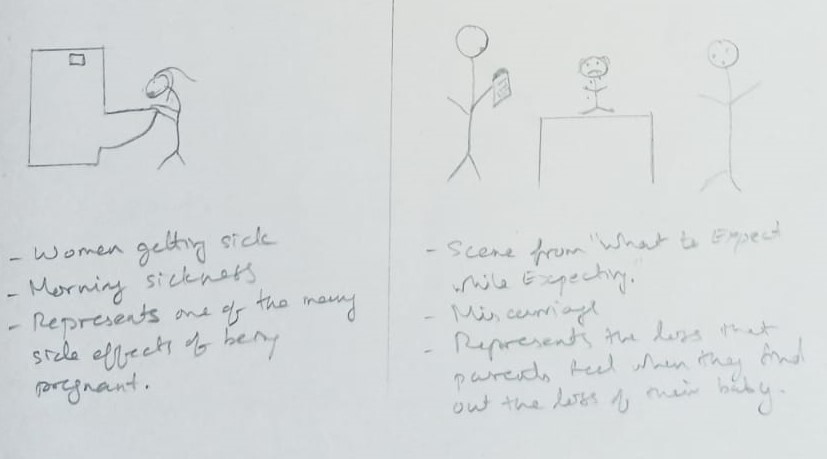 - Women getting sick
- Morning sickness
- Represents one of the many
side effects of being
pregnant.
- Scene from "What to Expect
while Expecting."
- Miscarriage
- Represents the loss that
parents feel when they find
out the loss of their baby.